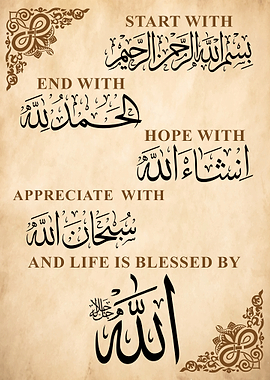 START WITH
بسم الله الرحمن الرحيم
END WITH
الحمد لله
HOPE WITH
انشاء الله
APPRECIATE WITH
سبحان الله
AND LIFE IS BLESSED BY
الله جل جلاله